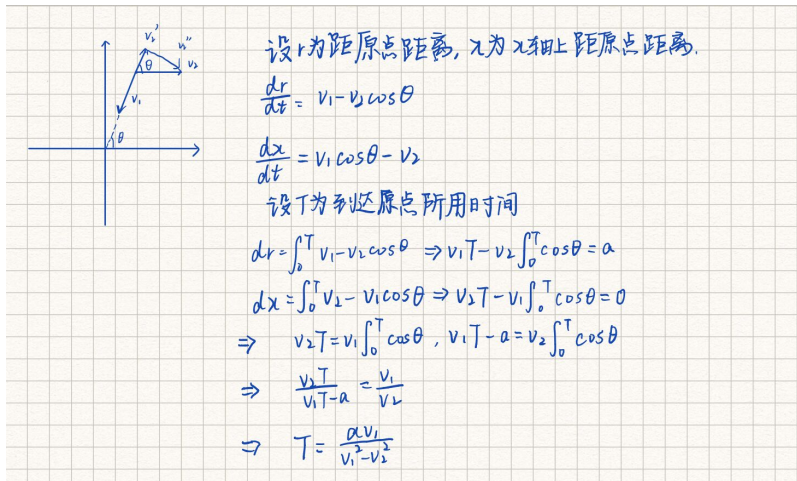 v₂' v₂'' v₂
θ
v₁
θ
设r为距原点距离, x为x轴上距原点距离.
dr/dt = v₁-v₂cosθ
dx/dt = v₁cosθ-v₂
设T为到达原点所用时间
dr=∫₀ᵀ v₁-v₂cosθ ⇒ v₁T-v₂∫₀ᵀcosθ=a
dx=∫₀ᵀ v₂-v₁cosθ ⇒ v₂T-v₁∫₀ᵀcosθ=0
⇒ v₂T=v₁∫₀ᵀcosθ , v₁T-a=v₂∫₀ᵀcosθ
⇒ v₂T/(v₁T-a) = v₁/v₂
⇒ T= av₁/(v₁²-v₂²)